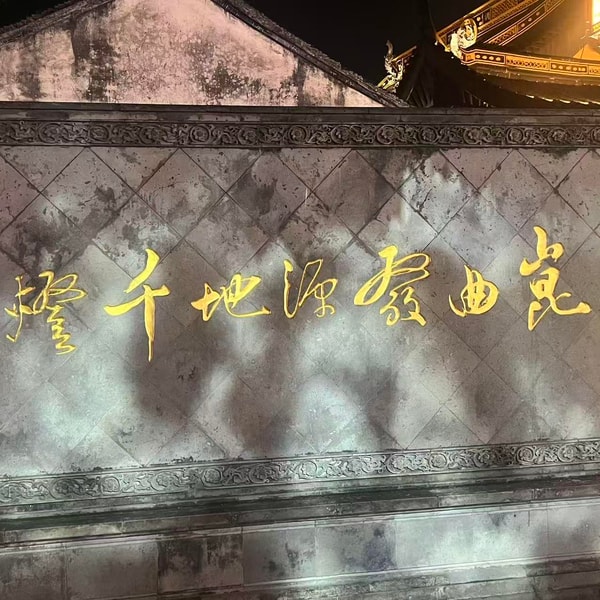 崑曲發源地千燈